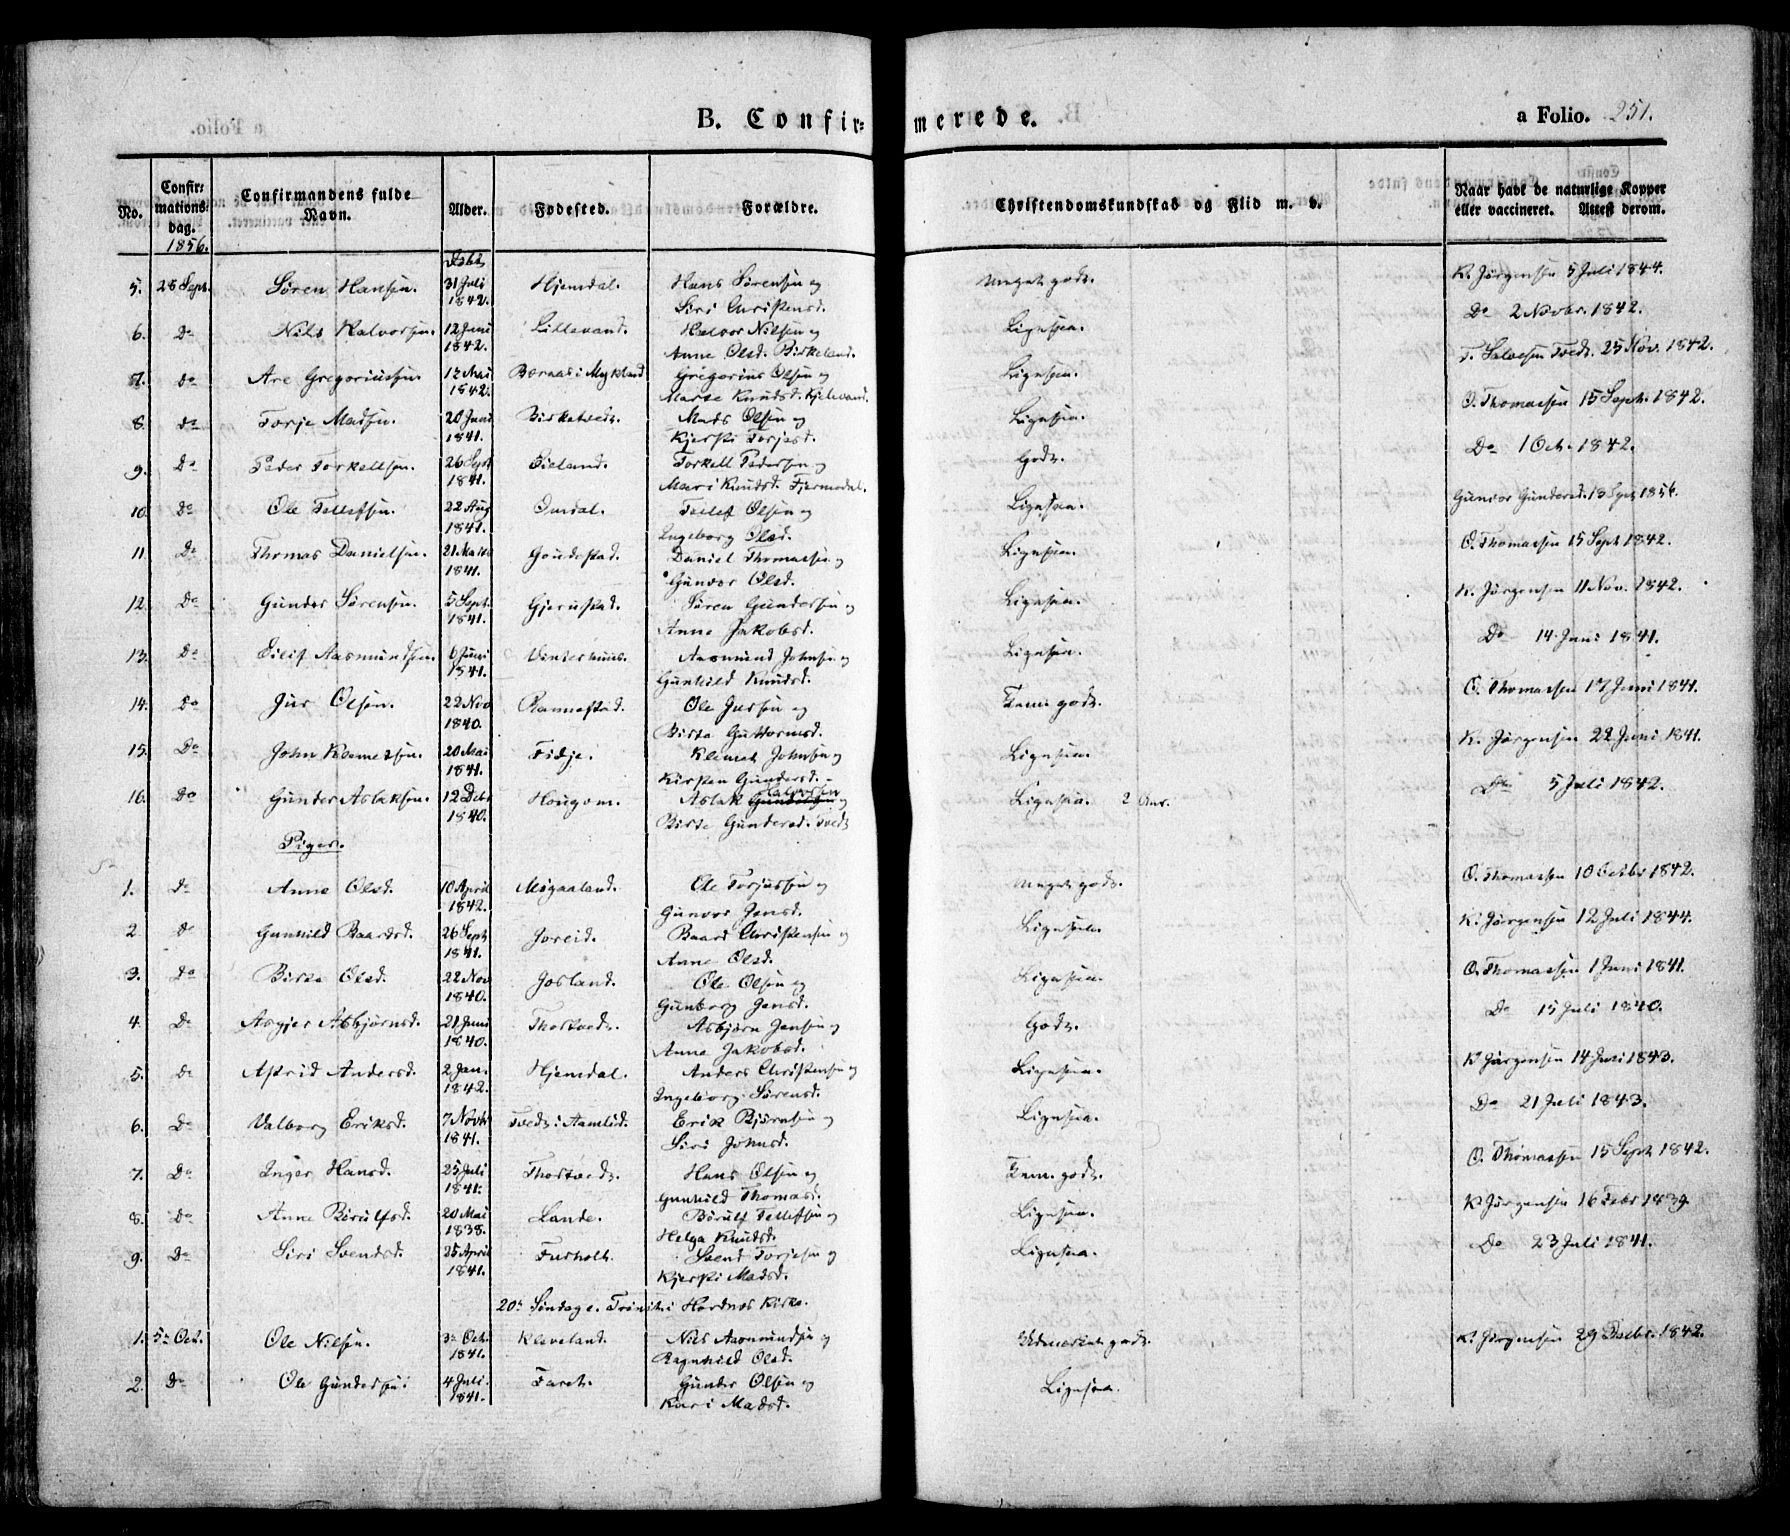 B. Confir= merede. a Folio. 251.
No. Confir=mations=dag. Confirmandens fulde Navn. Alder. Fødested. Forældre. Christendomskundskab og Flid m. v. Naar havt de naturlige Kopper eller vaccineret. Attest derom.
1856.
5. 28 Sept. Søren Hansen. 31 Juli 1842. Hjemdal. Hans Sørensen og Siri Christensd. Meget godt. K. Jørgensen 5 Juli 1844.
6. Do Nils Halvorsen. 12 Juni 1842. Lillevand. Halvor Nilsen og Anne Olsd. Birkeland. Ligesaa. Do 2 Novbr. 1842.
7. Do Are Gregoriussen. 12 Mai 1842. Bernaas i Mykland Gregorius Olsen og Marte Knudsd. Kjelevand. Ligesaa. T. Salvesen Tvedt 25 Nov. 1842.
8. Do Torje Madsen. 20 Juni 1841. Birketvedt. Mads Olsen og Kjersti Torjesd. Ligesaa. O. Thomassen 15 Sept. 1842.
9. Do Peder Torkellsen. 26 Sept 1841. Sieland. Torkell Pedersen og Mari Knudsd. Fjermedal. Godt. Do 1 Oct. 1842.
10. Do Ole Tellefsen. 22 Aug 1841. Omdal. Tellef Olsen og Ingeborg Olsd. Ligesaa. Gunvor Gundersd. 13 Sept 1856.
11. Do Thomas Danielsen. 21 Marts 1841. Goudestad. Daniel Thomassen og Gunvor Olsd. Ligesaa. O. Thomassen 15 Sept 1842.
12. Do Gunder Sørensen. 5 Sept. 1841. Gjerustad. Søren Gundersen og Anne Jakobsd. Ligesaa. K. Jørgensen 11 Nov. 1842.
13. Do Eilif Aasmundsen. 6 Juni 1841. Vinterhuus. Aasmund Johnsen og Gunhild Knudsd. Ligesaa. Do 14 Juni 1841.
14. Do Jur Olsen. 22 Nov 1840. Rannestad. Ole Jursen og Birte Guttormsd. Temm. godt. O. Thomassen 17 Juni 1841.
15. Do John Klemetsen. 20 Mai 1841. Fidje. Klemet Johnsen og Kirsten Gundersd. Ligesaa. K. Jørgensen 22 Juni 1841.
16. Do Gunder Aslaksen. 12 Debr 1840. Hougom. Aslak Halvorsen og Birte Gundersd. Tvedt Ligesaa. 2 Do 5 Juli 1842.
Piger.
1. Do Anne Olsd. 10 April 1842. Migaaland. Ole Torjussen og Gunvor Jensd. Meget godt. O. Thomassen 10 Octbr 1842.
2 Do Gunhild Baardsd. 26 Sept 1841. Joreid. Baard Christensen og Anne Olsd. Ligesaa. K. Jørgensen 12 Juli 1844.
3. Do Birte Olsd. 22 Nov 1840. Josland. Ole Olsen og Gunborg Jensd. Ligesaa. O. Thomassen 1 Juni 1841.
4. Do Asgjer Asbjørnsd. 21 Juni 1840. Thortvedt. Asbjørn Jensen og Anne Jakobsd. Godt. Do 15 Juli 1840.
5. Do Astrid Andersd. 2 Jan. 1842. Hjemdal. Anders Christensen og Ingeborg Sørensd. Ligesaa. K. Jørgensen 14 Juni 1843.
6. Do Valborg Eriksd. 7 Novbr 1841. Tvedt i Aamlid. Erik Bjørnsen og Siri Johnsd. Ligesaa. Do 21 Juli 1843.
7. Do Inger Hansd. 25 Juli 1841. Thortvedt. Hans Olsen og Gunhild Thomasd. Temm. godt. O. Thomassen 15 Sept 1842.
8. Do Anne Børulfsd. 20 Mai 1838. Lande. Børulf Tellefsen og Helga Knudsd. Ligesaa. K. Jørgensen 16 Febr 1839.
9. Do Siri Svendsd. 25 April 1841. Furholt. Svend Torjesen og Kjersti Madsd. Ligesaa. Do 23 Juli 1841.
20de Søndag e. Trinit. i Hordnæs Kirke.
1. 5te Oct. Ole Nilsen. 3de Oct. 1841. Kleveland. Nils Aasmundsen og Ragnhild Olsd. Udmærket godt. K. Jørgensen 29 Decbr. 1842.
2. Do Ole Gundersen. 4 Juli. 1841. Faret. Gunder Olsen og Kari Madsd. Ligesaa.